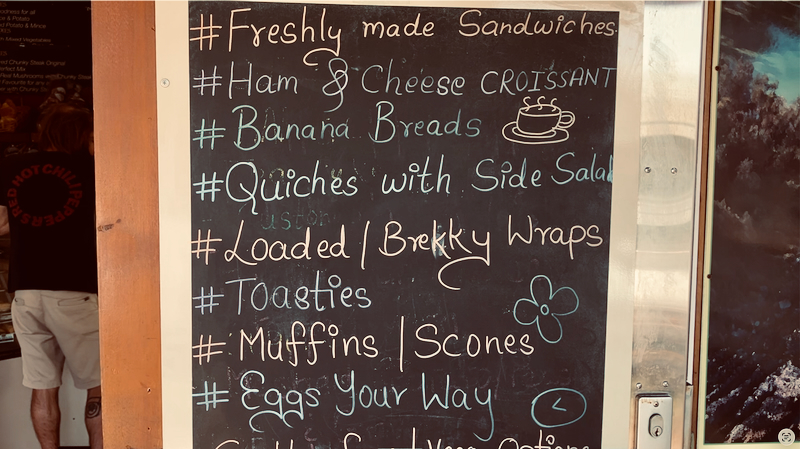 #Freshly made Sandwiches
#Ham & Cheese CROISSANT
#Banana Breads
#Quiches with Side Salad
#Loaded | Brekky Wraps
#Toasties
#Muffins | Scones
#Eggs Your Way
Options
RED HOT CHILI PEPPERS
Chunky Steak Original
Potato & Mince